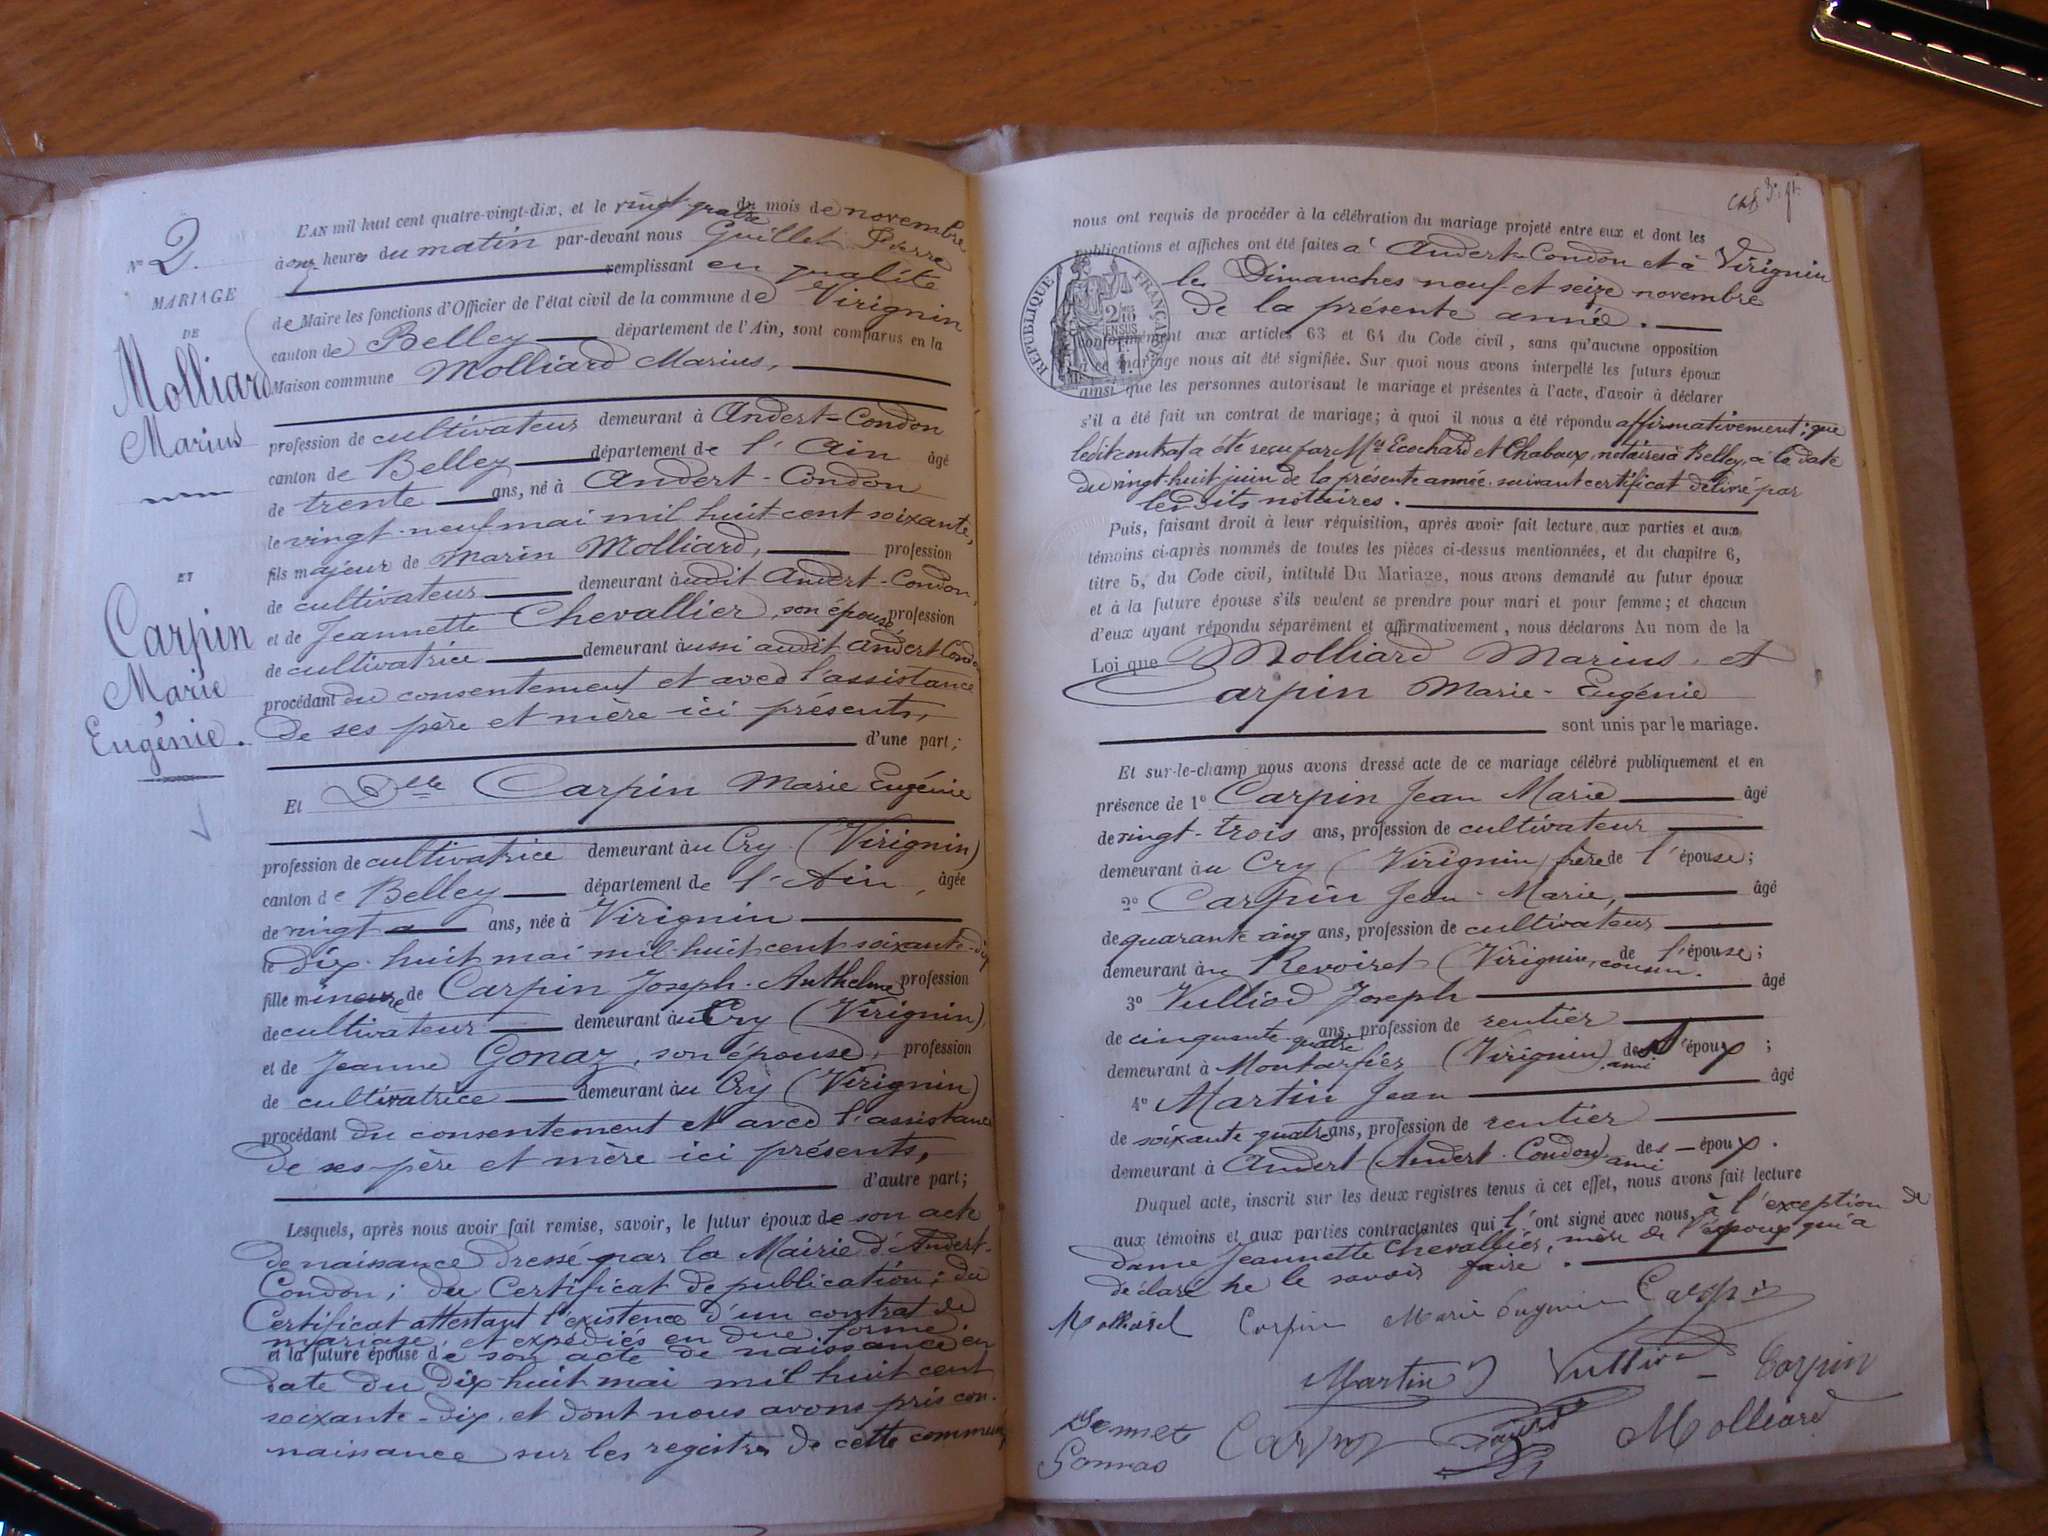 N° 2.
MARIAGE
DE
Molliard
Marius
ET
Carpin
Marie
Eugénie.
L'AN mil huit cent quatre-vingt-dix, et le vingt-quatre du mois de novembre
à onze heures du matin par-devant nous Guillet Pierre
remplissant en qualité
de Maire les fonctions d'Officier de l'état civil de la commune de Virignin
canton de Belley département de l'Ain, sont comparus en la
Maison commune Molliard Marius,
profession de cultivateur demeurant à Andert-Condon
canton de Belley département de l'Ain âgé
de trente ans, né à Andert-Condon
le vingt-neuf mai mil huit cent soixante,
fils majeur de Marin Molliard, profession
de cultivateur demeurant à udit Andert-Condon,
et de Jeannette Chevallier, son épouse, profession
de cultivatrice demeurant aussi audit Andert Condon
procédant du consentement et avec l'assistance
de ses père et mère ici présents,
d'une part;
Et Delle Carpin Marie Eugénie
profession de cultivatrice demeurant au Cry (Virignin)
canton de Belley département de l'Ain, âgée
de vingt ans, née à Virignin
le dix-huit mai mil huit cent soixante-dix
fille mineure de Carpin Joseph-Anthelme profession
de cultivateur demeurant au Cry (Virignin),
et de Jeanne Gonaz, son épouse, profession
de cultivatrice demeurant au Cry (Virignin)
procédant du consentement et avec l'assistance
de ses père et mère ici présents,
d'autre part;
Lesquels, après nous avoir fait remise, savoir, le futur époux de son acte
de naissance dressé par la Mairie d'Andert-
Condon; du Certificat de publication; du
Certificat attestant l'existence d'un contrat de
mariage, et expédiés en due forme;
et la future épouse de son acte de naissance en
date du dix huit mai mil huit cent
soixante-dix, et dont nous avons pris con-
naissance sur les registres de cette commune,
nous ont requis de procéder à la célébration du mariage projeté entre eux et dont les
publications et affiches ont été faites à Andert-Condon et à Virignin
les Dimanches neuf et seize novembre
de la présente année.
RÉPUBLIQUE FRANÇAISE
conformément aux articles 63 et 64 du Code civil, sans qu'aucune opposition
à ce mariage nous ait été signifiée. Sur quoi nous avons interpellé les futurs époux
ainsi que les personnes autorisant le mariage et présentes à l'acte, d'avoir à déclarer
s'il a été fait un contrat de mariage; à quoi il nous a été répondu affirmativement; que
ledit contrat a été reçu par Mes Ecochard et Chaboux, notaires à Belley, à la date
du vingt-huit juin de la présente année, suivant certificat délivré par
lesdits notaires.
Puis, faisant droit à leur réquisition, après avoir fait lecture aux parties et aux
témoins ci-après nommés de toutes les pièces ci-dessus mentionnées, et du chapitre 6,
titre 5, du Code civil, intitulé Du Mariage, nous avons demandé au futur époux
et à la future épouse s'ils veulent se prendre pour mari et pour femme; et chacun
d'eux ayant répondu séparément et affirmativement, nous déclarons Au nom de la
Loi que Molliard Marius, et
Carpin Marie-Eugénie
sont unis par le mariage.
Et sur-le-champ nous avons dressé acte de ce mariage célébré publiquement et en
présence de 1° Carpin Jean Marie âgé
de vingt-trois ans, profession de cultivateur
demeurant au Cry (Virignin) frère de l'épouse;
2° Carpin Jean-Marie, âgé
de quarante cinq ans, profession de cultivateur
demeurant au Revoiret (Virignin, cousin de l'épouse;
3° Vulliod Joseph âgé
de cinquante-quatre ans, profession de rentier
demeurant à Montarfier (Virignin), ami de l'époux;
4° Martin Jean âgé
de soixante quatre ans, profession de rentier
demeurant à Andert (Andert-Condon) ami des époux.
Duquel acte, inscrit sur les deux registres tenus à cet effet, nous avons fait lecture
aux témoins et aux parties contractantes qui l'ont signé avec nous, à l'exception de
dame Jeannette Chevallier, mère de l'époux qui a
déclaré ne le savoir faire.
Molliard Carpin Marie Eugenie Carpin
Martin Vulliod Carpin
Jennet
Gonnas Carpin Molliard